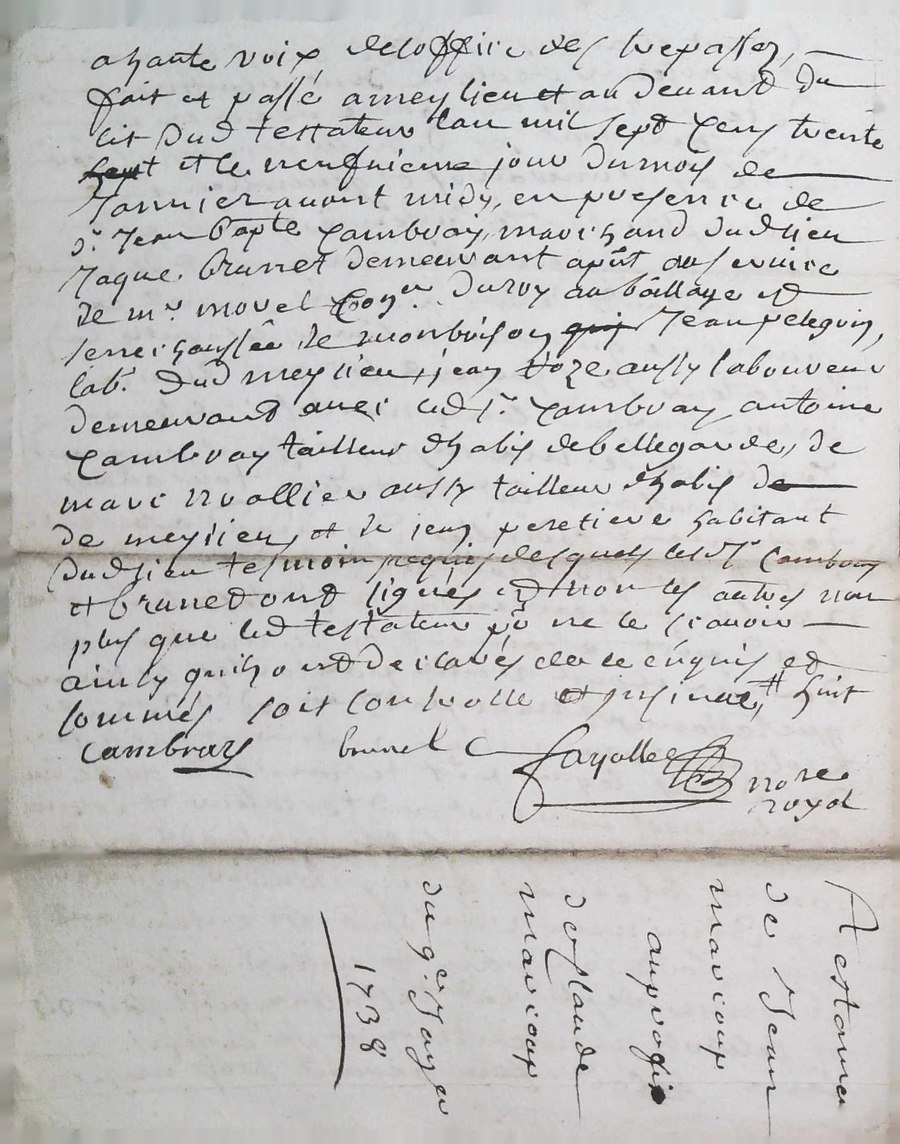 a haute voix de loffice des trepassez,
fait et passé a meylieu et au devant du
lit dud testateur lan mil sept cens trente
sept et le neufvieme jour du mois de
Janvier avant midy, en presence de
Sr Jean bapte Cambray, marchand dud lieu
Jaque brunet demeurant apnt au service
de mr morel Coner du roy au bailliage et
senechaussée de monbrison qui Jean pelegrin,
labr dud meylieu, jean
aussy laboureur
demeurant avec led sr Cambray, antoine
Cambray tailleur dhabis de bellegarde, de
marc rvollier aussy tailleur dhabis de
de meylieu, et de jean peretiere habitant
dud lieu tesmoins requis desquels lesd sr Cambray
et brunet ont signés et non les autres non
plus que led testateur pr ne le scavoir
ainsy quils ont declarés de ce enquis et
sommés soit controlle et insinue, # huit
Cambray brunet Fayolle nore
royal
Testamen
de Jean
marcoup
au profit
de Claude
marcoup
du 9e Janver
1738